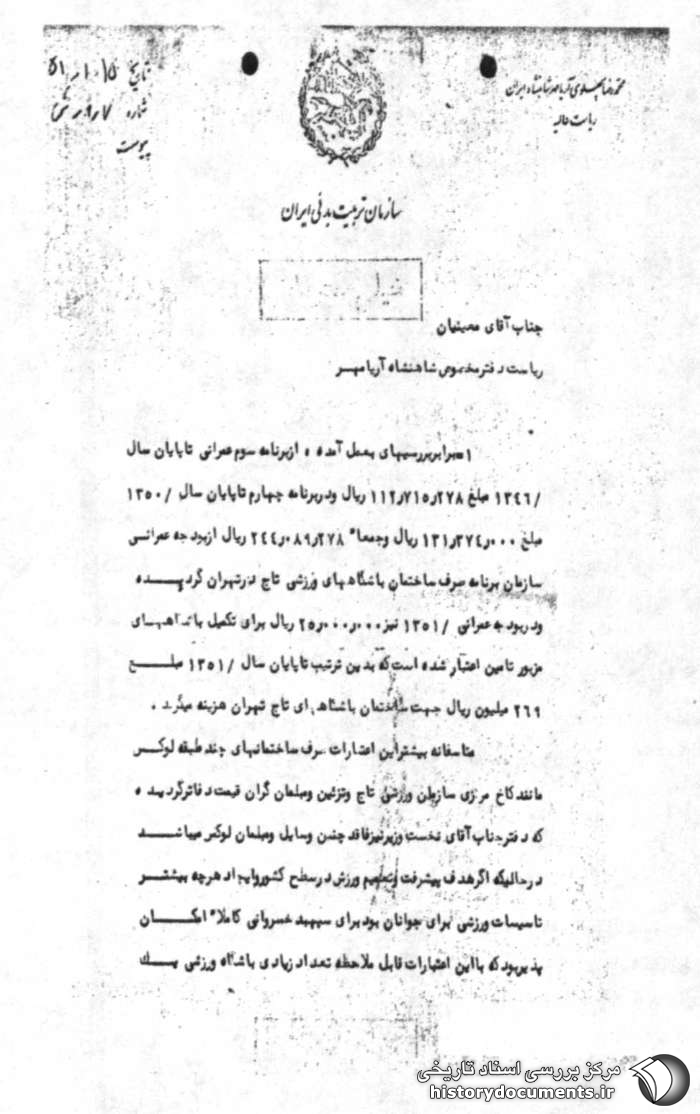 محمدرضا پهلوی آریامهر شاهنشاه ایران
ریاست عالیه
تاریخ ۱۵ ر ۱۰ ر ۵۱
شماره
پیوست
سازمان تربیت بدنی ایران
جناب آقای معینیان
ریاست دفتر مخصوص شاهنشاه آریامهر
۱- برابر بررسیهای بعمل آمده ، از برنامه سوم عمرانی تا پایان سال
۱۳٤٦/ مبلغ ۱۱۲٫۷۱۵٫۲۷۸ ریال و در برنامه چهارم تا پایان سال ۱۳۵۰/
مبلغ ۱۳۱٫۳۷٤٫۰۰۰ ریال وجمعا" ۲٤٤٫۰۸۹٫۲۷۸ ریال از بودجه عمرانی
سازمان برنامه صرف ساختمان باشگاههای ورزشی تاج در تهران گردیده
و در بودجه عمرانی ۱۳۵۱/ نیز ۲۵٫۰۰۰٫۰۰۰ ریال برای تکمیل باشگاههای
مزبور تامین اعتبار شده است که بدین ترتیب تا پایان سال ۱۳۵۱/ مبلغ
۲٦۹ میلیون ریال جهت ساختمان باشگاههای تاج تهران هزینه میگردد .
متاسفانه بیشتر این اعتبارات صرف ساختمانهای چند طبقه لوکس
مانند کاخ مرکزی سازمان ورزشی تاج وتزئین ومبلمان گران قیمت دفاتر گردیده
که دفتر جناب آقای نخست وزیر نیز فاقد چنین وسایل ومبلمان لوکس میباشد
در حالیکه اگر هدف پیشرفت وتعمیم ورزش در سطح کشور وایجاد هرچه بیشتر
تاسیسات ورزشی برای جوانان بود برای سپهبد خسروانی کاملا" امکان
پذیر بود که با این اعتبارات قابل ملاحظه تعداد زیادی باشگاه ورزشی یک
مرکز بررسی اسناد تاریخی
historydocuments.ir